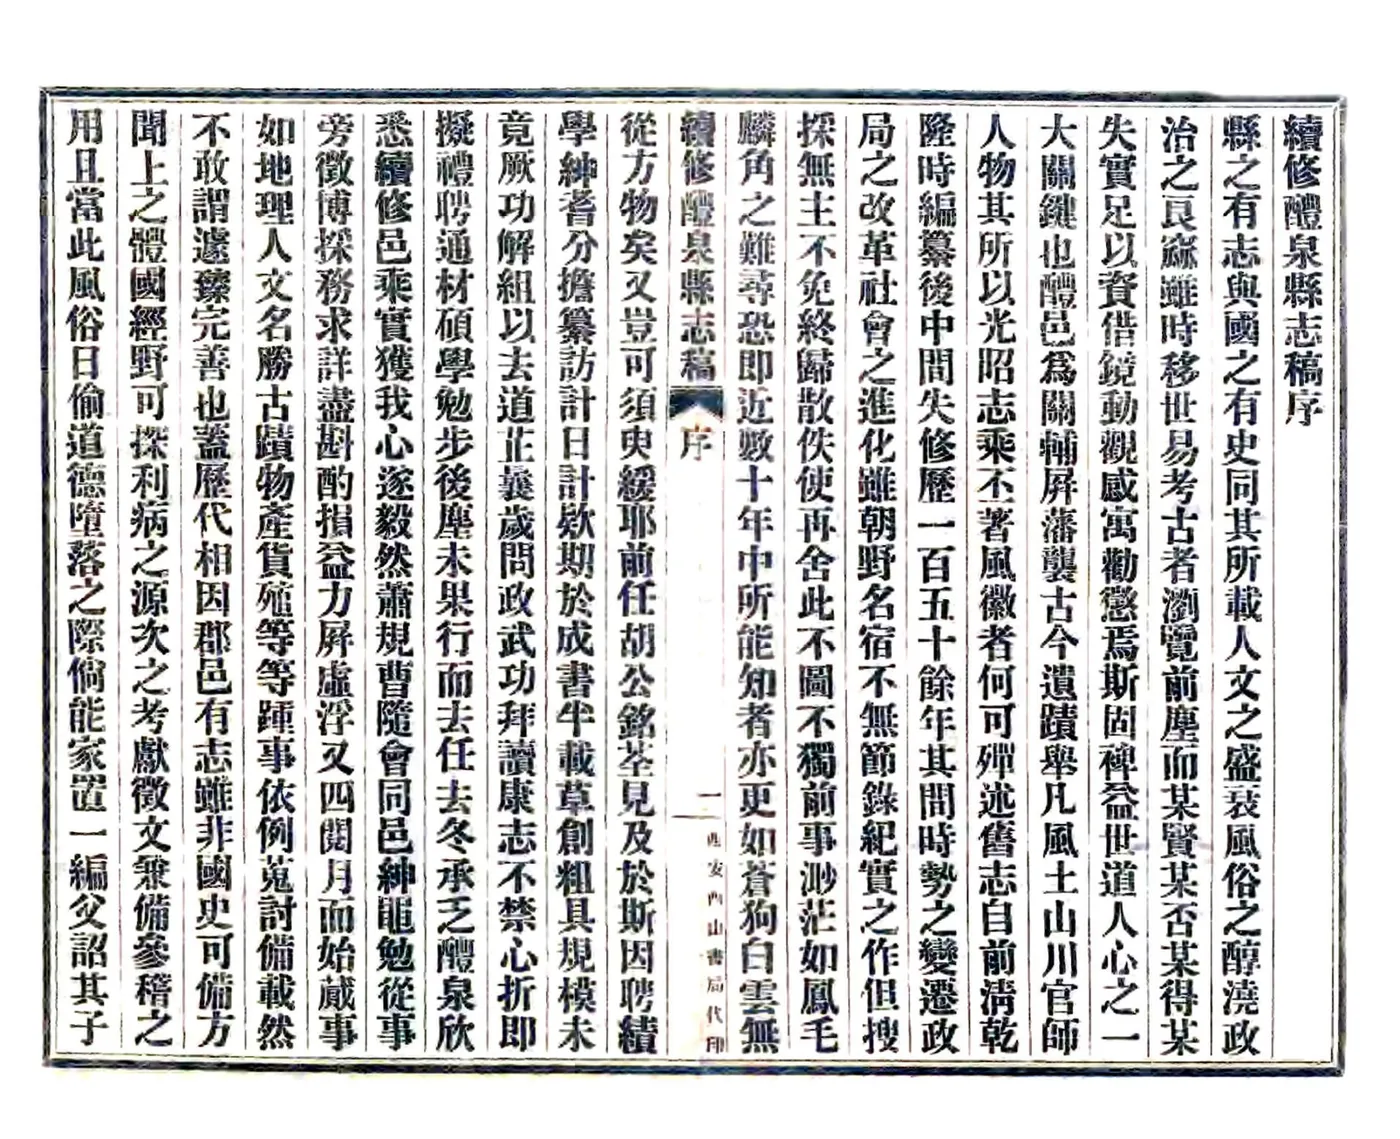 續修醴泉縣志稿序
縣之有志與國之有史同其所載人文之盛衰風俗之醇澆政
治之良窳雖時移世易考古者瀏覽前塵而某賢某否某得某
失實足以資借鏡動觀感寓勸懲焉斯固裨益世道人心之一
大關鍵也醴邑爲關輔屛藩襲古今遺蹟舉凡風土山川官師
人物其所以光昭志乘丕著風徽者何可殫述舊志自前淸乾
隆時編纂後中間失修歷一百五十餘年其間時勢之變遷政
局之改革社會之進化雖朝野名宿不無節錄紀實之作但搜
採無主不免終歸散佚使再舍此不圖不獨前事渺茫如鳳毛
麟角之難尋恐即近數十年中所能知者亦更如蒼狗白雲無
續修醴泉縣志稿 序 一 西安酉山書局代印
從方物矣又豈可須臾緩耶前任胡公銘荃見及於斯因聘績
學紳耆分擔纂訪計日計欵期於成書半載草創粗具規模未
竟厥功解組以去道芷曩歲問政武功拜讀康志不禁心折即
擬禮聘通材碩學勉步後塵未果行而去任去冬承乏醴泉欣
悉續修邑乘實獲我心遂毅然蕭規曹隨會同邑紳黽勉從事
旁徵博採務求詳盡斟酌損益力屛虛浮又四閱月而始蕆事
如地理人文名勝古蹟物產貨殖等等踵事依例蒐討備載然
不敢謂遽臻完善也蓋歷代相因郡邑有志雖非國史可備方
聞上之體國經野可探利病之源次之考獻徵文兼備參稽之
用且當此風俗日偷道德墮落之際倘能家置一編父詔其子